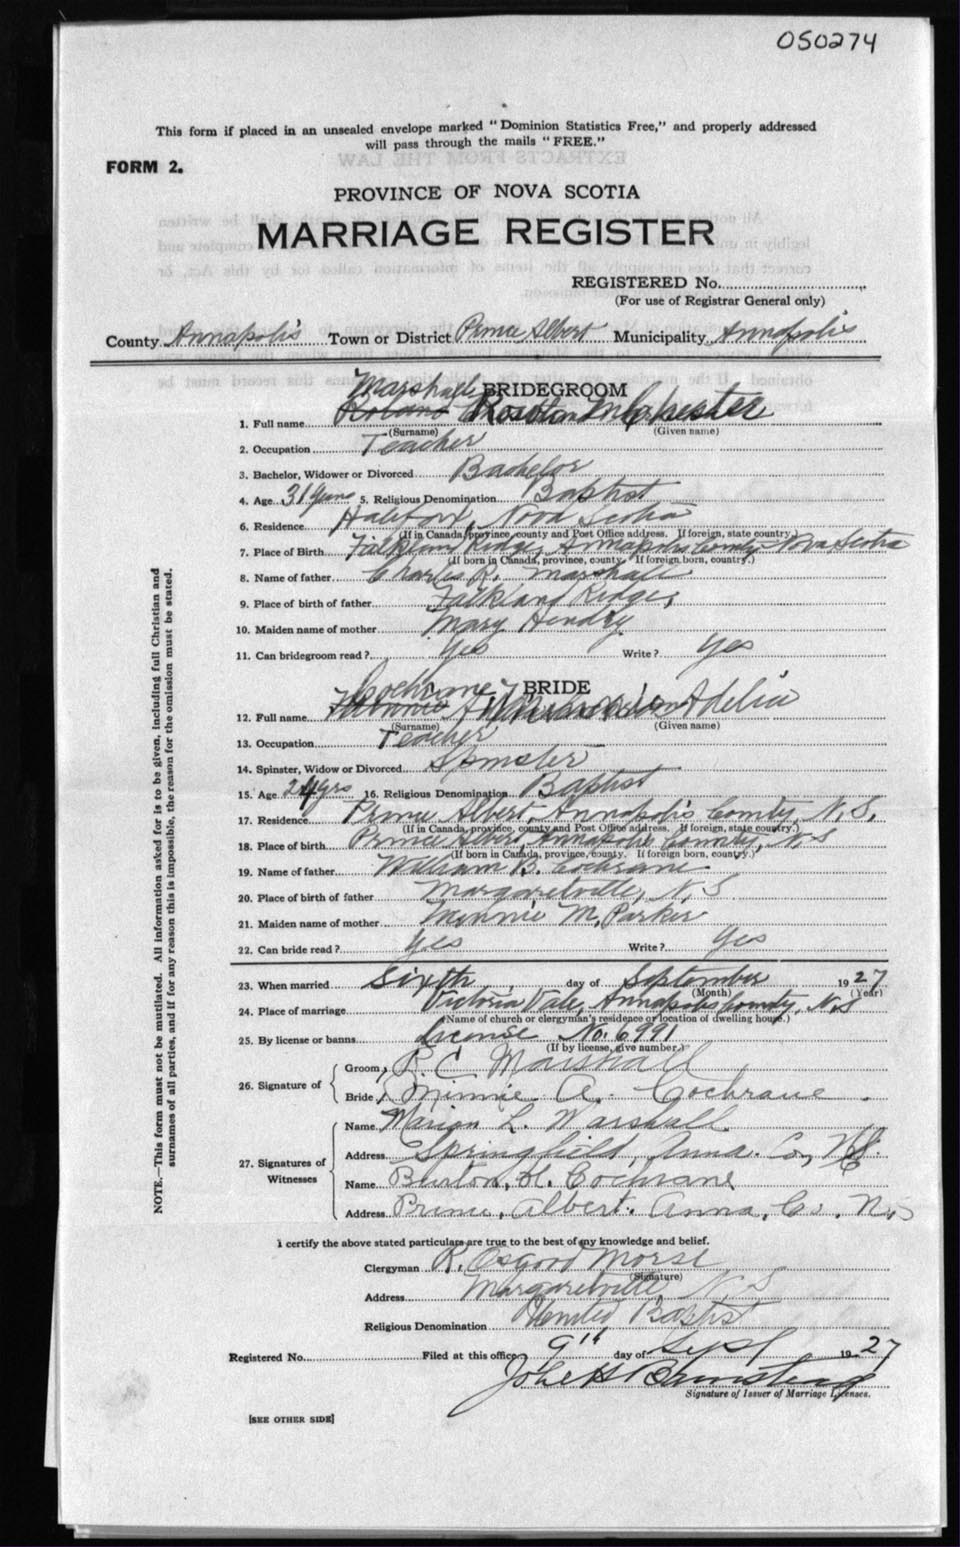 050274
This form if placed in an unsealed envelope marked "Dominion Statistics Free," and properly addressed
will pass through the mails "FREE."
FORM 2.
PROVINCE OF NOVA SCOTIA
MARRIAGE REGISTER
REGISTERED No.
(For use of Registrar General only)
County Annapolis Town or District Prince Albert Municipality Annapolis
BRIDEGROOM
Marshall
1. Full name Chester
(Surname) (Given name)
2. Occupation Teacher
3. Bachelor, Widower or Divorced Bachelor
4. Age 31 Years 5. Religious Denomination Baptist
6. Residence Halifax, Nova Scotia
(If in Canada, province, county and Post Office address. If foreign, state country.)
7. Place of Birth Falkland Ridge, Annapolis County Nova Scotia
(If born in Canada, province, county. If foreign born, country.)
8. Name of father Charles R. Marshall
9. Place of birth of father Falkland Ridge,
10. Maiden name of mother Mary Hendry
11. Can bridegroom read? Yes Write? Yes
BRIDE
Cochrane
12. Full name Minnie Adelia
(Surname) (Given name)
13. Occupation Teacher
14. Spinster, Widow or Divorced Spinster
15. Age 24 yrs 16. Religious Denomination Baptist
17. Residence Prince Albert, Annapolis County, N.S.
(If in Canada, province, county and Post Office address. If foreign, state country.)
18. Place of birth Prince Albert, Annapolis County, N.S
(If born in Canada, province/county. If foreign born, country.)
19. Name of father William B. Cochrane
20. Place of birth of father Margaretville, N.S
21. Maiden name of mother Minnie M. Parker
22. Can bride read? Yes Write? Yes
23. When married Sixth day of September 1927
(Month) (Year)
24. Place of marriage Victoria Vale, Annapolis County, N.S
(Name of church or clergyman's residence or location of dwelling house.)
25. By license or banns License No. 6991
(If by license, give number.)
26. Signature of
Groom R. C Marshall
Bride Minnie A. Cochrane
27. Signatures of Witnesses
Name Marion L. Marshall.
Address Springfield, Anna. Co, N.S.
Name Burton H. Cochrane
Address Prince Albert. Anna. Co. N.S
I certify the above stated particulars are true to the best of my knowledge and belief.
Clergyman R. Osgood Morse
(Signature)
Address Margaretville N. S
Religious Denomination United Baptist
Registered No. Filed at this office 9th day of Sept 1927
John H
Signature of Issuer of Marriage Licenses.
[SEE OTHER SIDE]
NOTE.—This form must not be mutilated. All information asked for is to be given, including full Christian and
surnames of all parties, and if for any reason this is impossible, the reason for the omission must be stated.